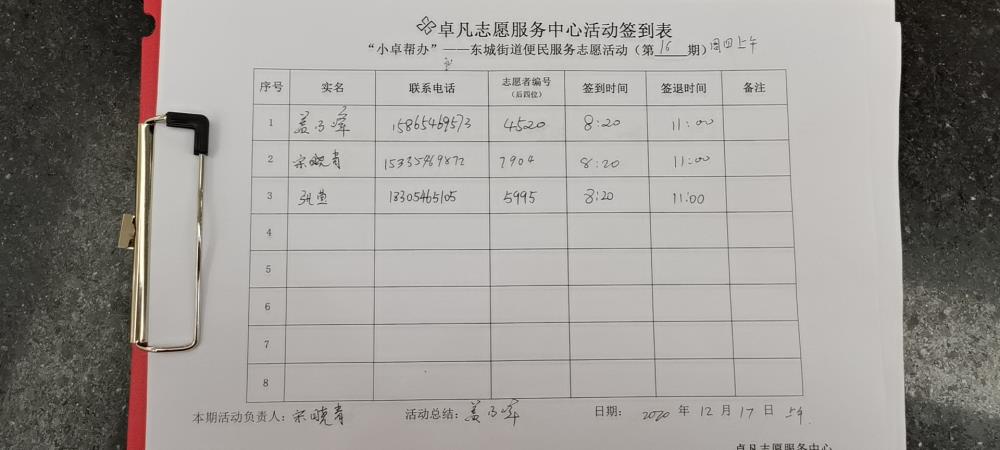 卓凡志愿服务中心活动签到表
“小卓帮办”——东城街道便民服务志愿活动（第16期）周四上午
序号 实名 联系电话 志愿者编号（后四位） 签到时间 签退时间 备注
1 盖乃峰 15865469573 4520 8:20 11:00
2 宋晓青 15335469872 7904 8:20 11:00
3 张萱 18305465105 5995 8:20 11:00
4
5
6
7
8
本期活动负责人：宋晓青 活动总结：盖乃峰 日期：2020年12月17日上午
卓凡志愿服务中心